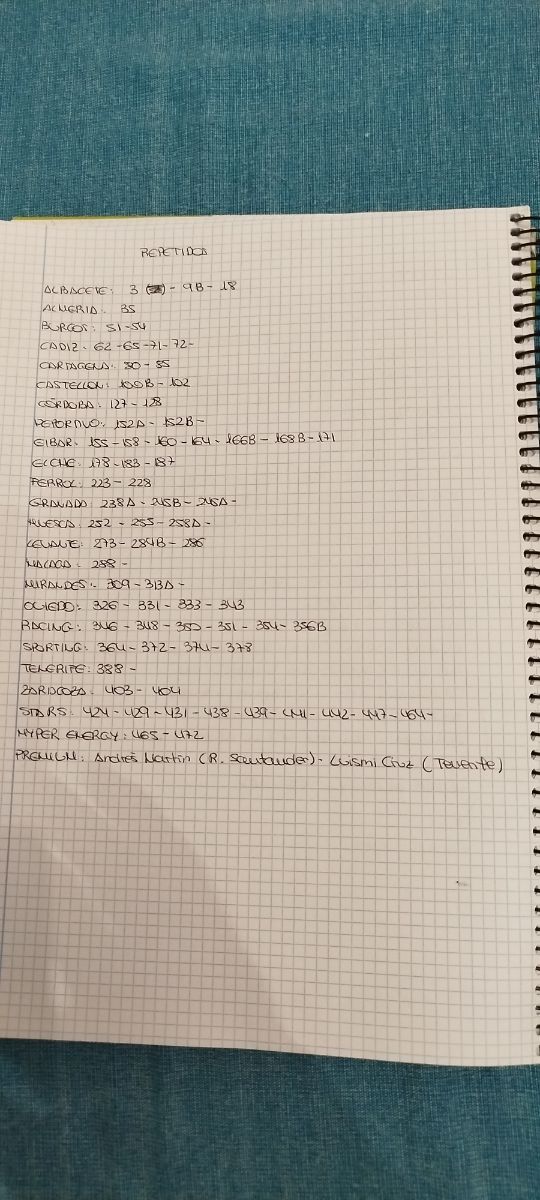 REPETIDOS
ALBACETE: 3 - 9B - 18
ALMERIA: 35
BURGOS: 51-54
CADIZ: 62-65-71-72-
CARTAGENA: 80-85
CASTELLON: 100B - 102
CÓRDOBA: 127-128
DEPORTIVO: 152A - 152B -
EIBAR: 155-158-160-164-166B-168B-171
ELCHE: 178-183-187
FERROL: 223-228
GRANADA: 238A - 245B - 245A -
HUESCA: 252 - 255 - 258A -
LEVANTE: 273-284B-286
MALAGA: 288 -
MIRANDES: 309-313A-
OVIEDO: 326-331-333-343
RACING: 346-348-350-351-354-356B
SPORTING: 364-372-374-378
TENERIFE: 388 -
ZARAGOZA: 403-404
STARS: 424-429-431-438-439-441-442-447-464-
HYPER ENERGY: 465-472
PREMIUM: Andrés Martín (R. Santander) - Luismi Cruz (Tenerife)